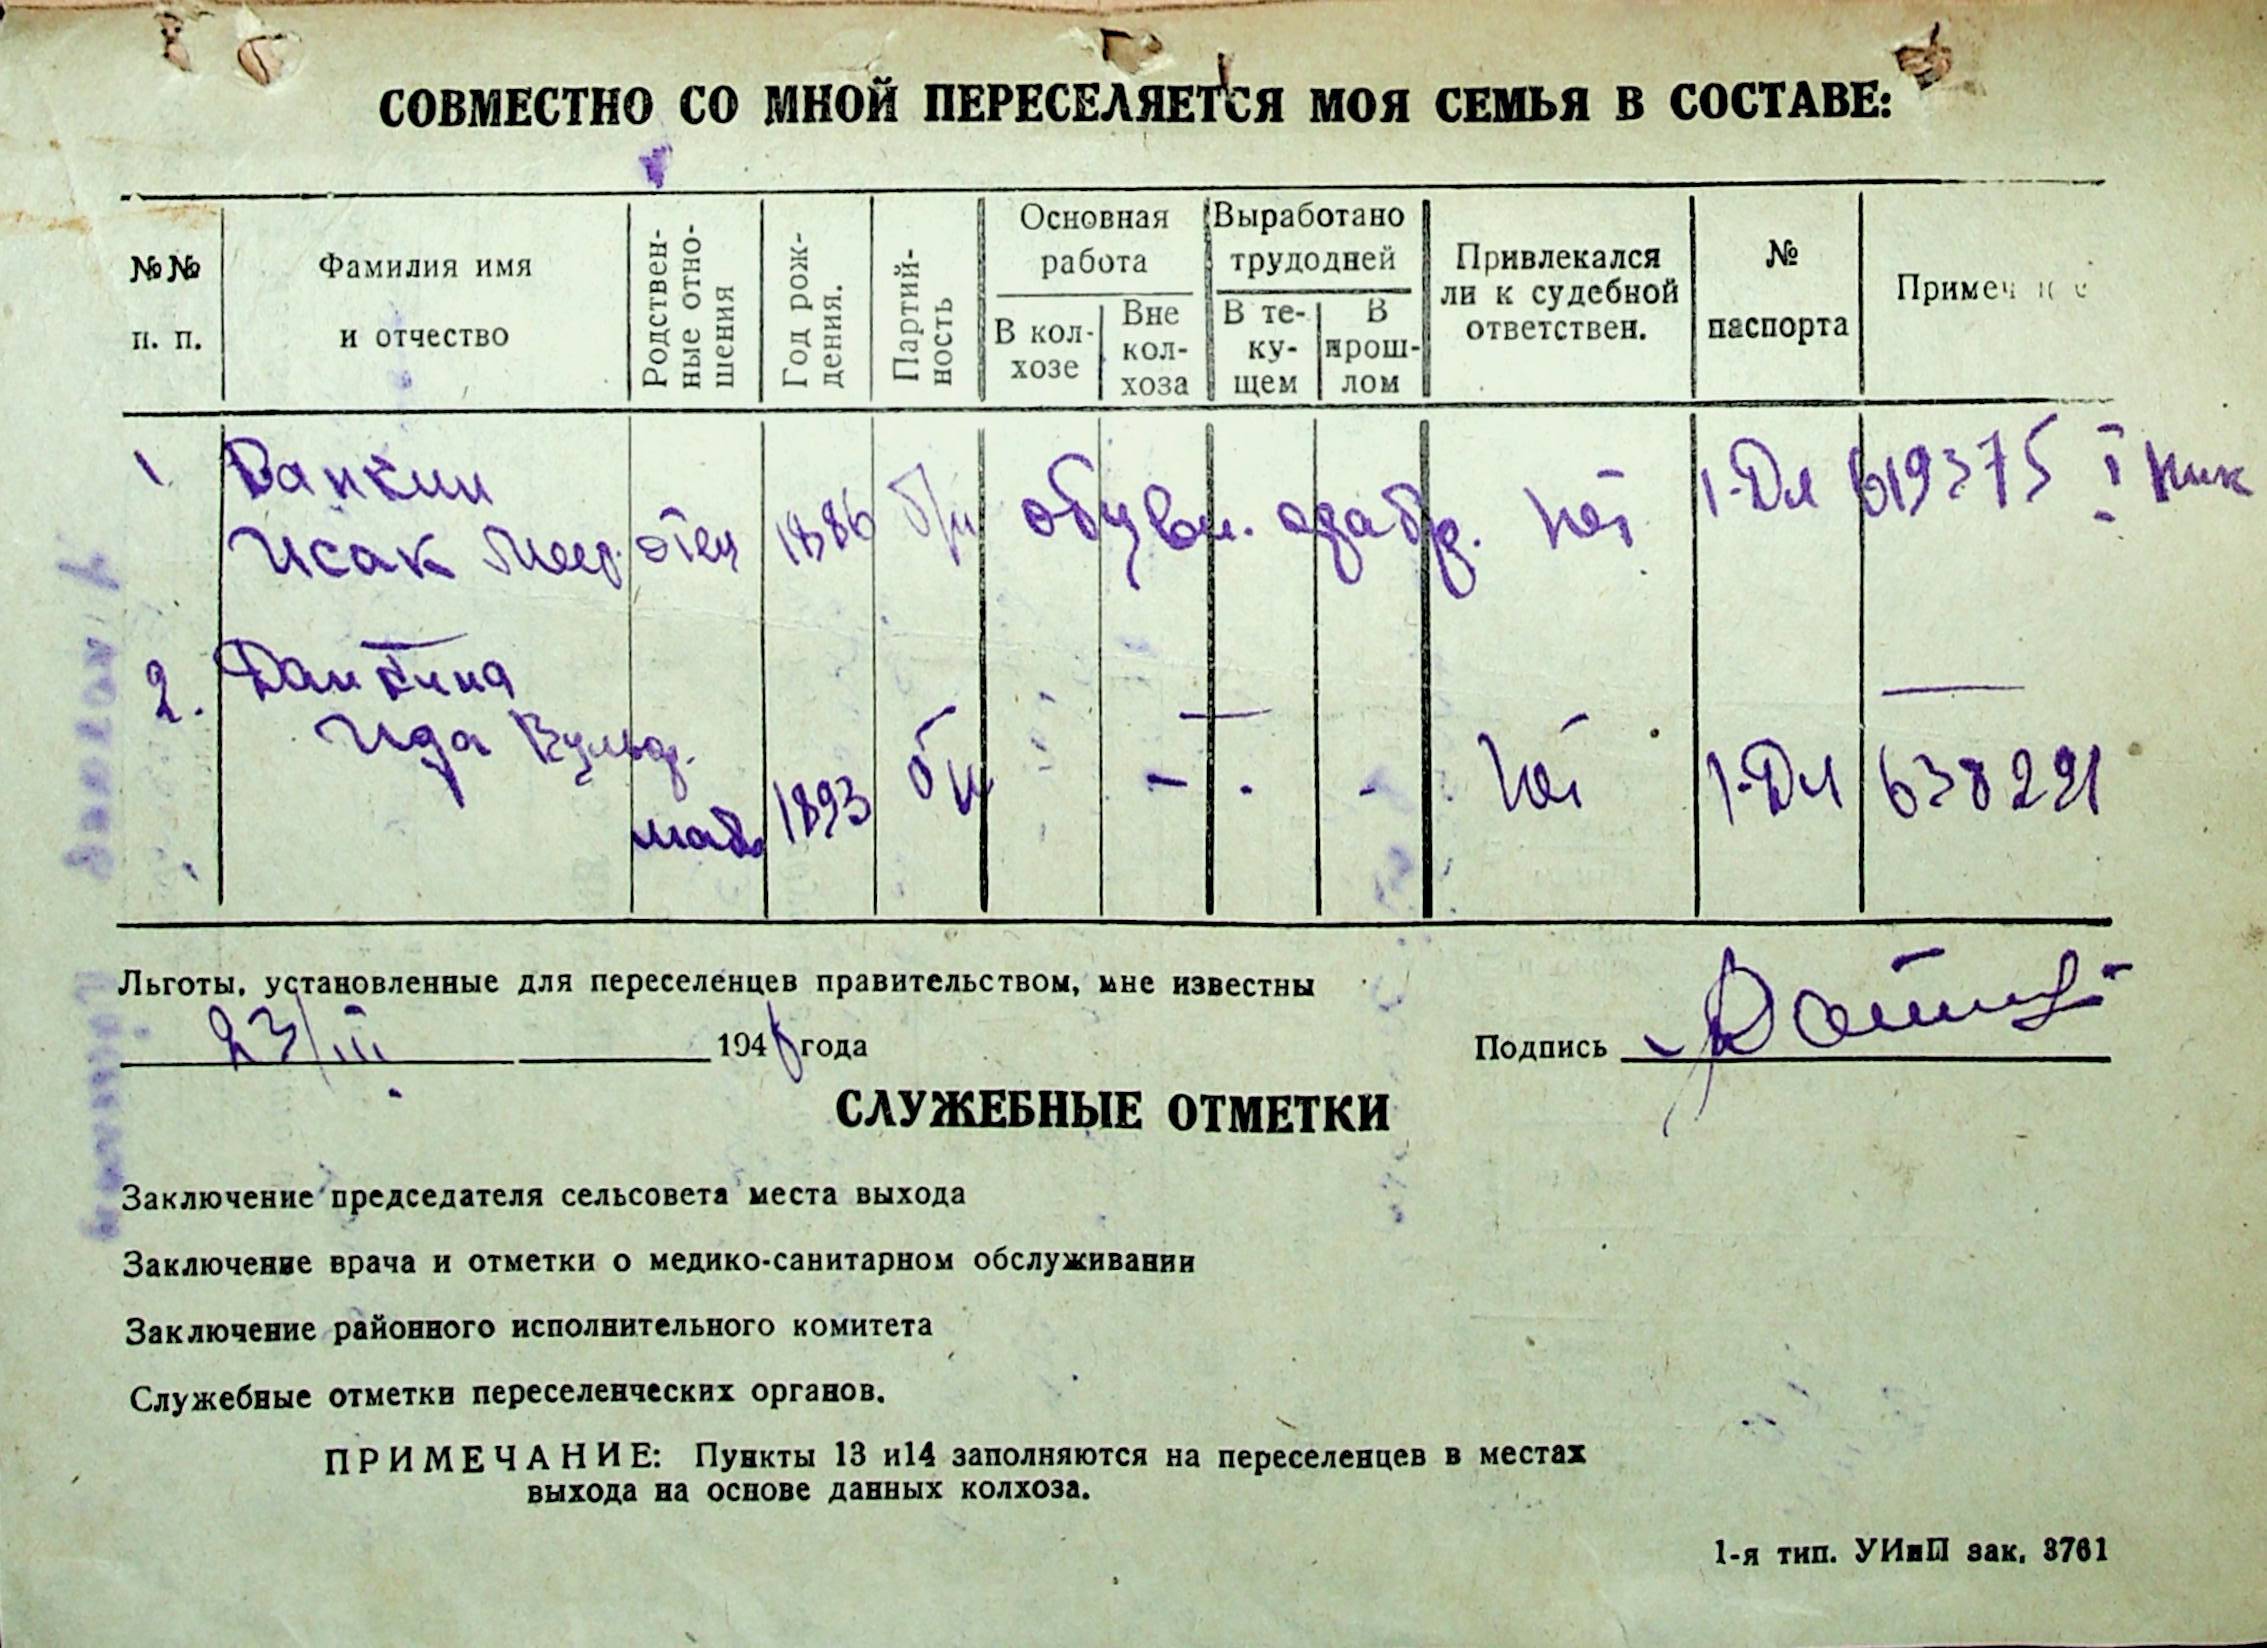 СОВМЕСТНО СО МНОЙ ПЕРЕСЕЛЯЕТСЯ МОЯ СЕМЬЯ В СОСТАВЕ:
№№ п. п.
Фамилия имя и отчество
Родствен-ные отно-шения
Год рож-дения.
Партий-ность
Основная работа
В кол-хозе
Вне кол-хоза
Выработано трудодней
В те-ку-щем
В прош-лом
Привлекался ли к судебной ответствен.
№ паспорта
Примеч
1
Исак Меер. отец 1886 б/п обувн. нет 1-Дл 619375
2.
Ида Вульф. 1893 б/п - - - нет 1-Дл 638291
Льготы, установленные для переселенцев правительством, мне известны
23/III 194 года
Подпись
СЛУЖЕБНЫЕ ОТМЕТКИ
Заключение председателя сельсовета места выхода
Заключение врача и отметки о медико-санитарном обслуживании
Заключение районного исполнительного комитета
Служебные отметки переселенческих органов.
ПРИМЕЧАНИЕ: Пункты 13 и14 заполняются на переселенцев в местах
выхода на основе данных колхоза.
1-я тип. УИиП зак. 3761